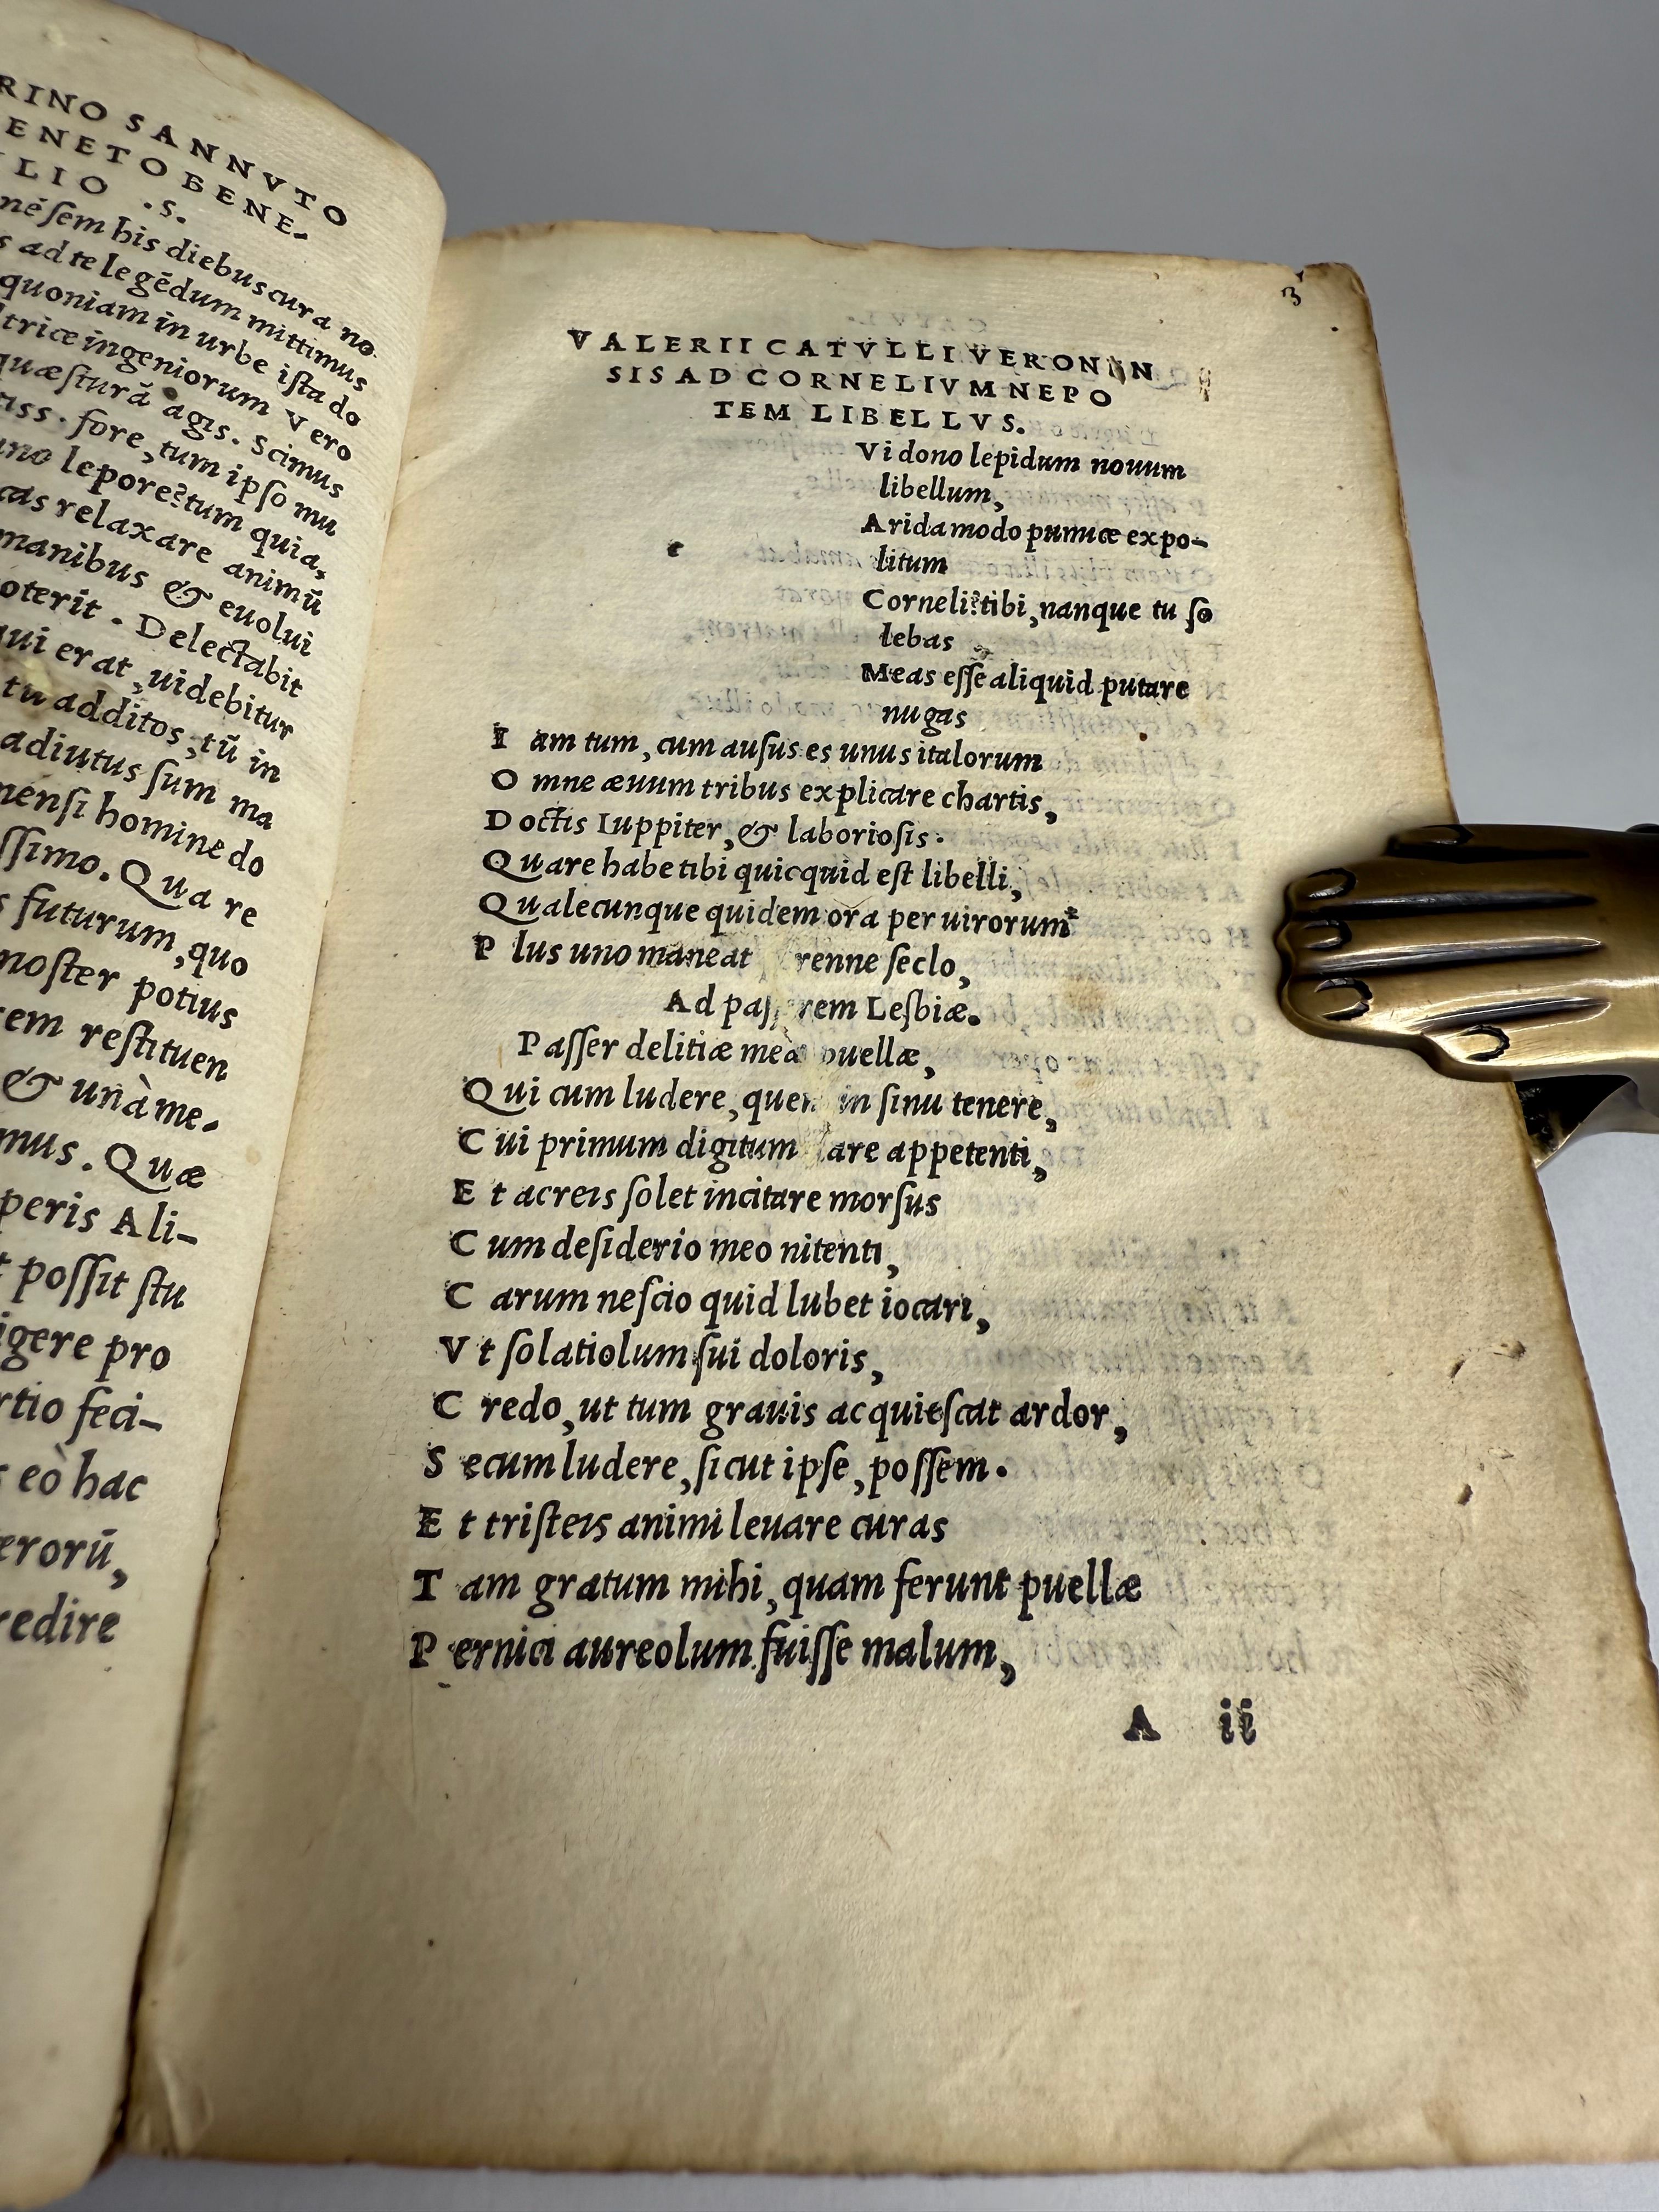 RINO SANNVTO
ENETO BENE-
LIO .S.
nésem his diebus cura no
s ad te legēdum mittimus
quoniam in urbe ista do
trice ingeniorum Vero
quæsturā agis. Scimus
iss. fore, tum ipso mu
uno lepore? tum quia,
cas relaxare animū
manibus & euolui
oterit. Delectabit
qui erat, uidebitur
tu additos, tū in
adiutus sum ma
nensi homine do
ssimo. Qua re
s futurum, quo
noster potius
rem restituen
& unà me-
mus. Quæ
peris Ali-
t possit stu
igere pro
rtio feci-
s eò hac
erorū,
redire
3
VALERII CATVLLI VERONIN
SIS AD CORNELIVM NEPO
TEM LIBELLVS.
Vi dono lepidum nouum
libellum,
Arida modo pumice expo-
litum
Corneli? tibi, nanque tu so
lebas
Meas esse aliquid putare
nugas
I am tum, cum ausus es unus italorum
O mne æuum tribus explicare chartis,
D octis Iuppiter, & laboriosis.
Q uare habe tibi quicquid est libelli,
Q ualecunque quidem ora per uirorum
P lus uno maneat renne seclo,
Ad pas rem Lesbiæ.
Passer delitiæ meæ puellæ,
Q ui cum ludere, quem in sinu tenere,
C ui primum digitum are appetenti,
E t acreis solet incitare morsus
C um desiderio meo nitenti,
C arum nescio quid lubet iocari,
V t solatiolum sui doloris,
C redo, ut tum grauis acquiescat ardor,
S ecum ludere, sicut ipse, possem.
E t tristeis animi leuare curas
T am gratum mihi, quam ferunt puellæ
P ernici aureolum fuisse malum,
A ii